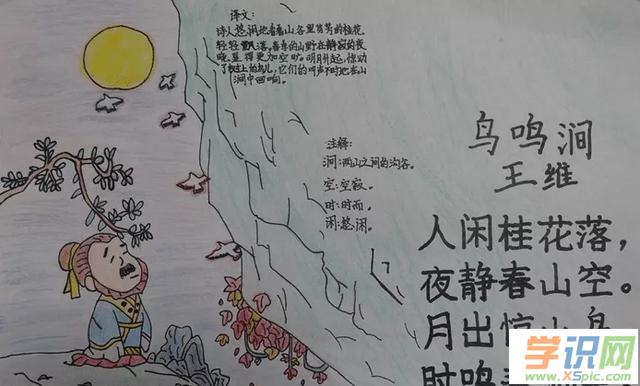 译文:
诗人悠闲地看着山谷里芬芳的桂花
轻轻飘落,春季的山野在静寂的夜
晚,显得更加空旷。明月升起,惊动
了树上的鸟儿,它们的叫声不时地在山
涧中回响。
注释:
涧:两山之间的沟谷。
空:空寂。
时:时而。
闲:悠闲。
鸟鸣涧
王维
人闲桂花落,
夜静春山空。
月出惊山鸟
时鸣
学识网
www.XSpic.com